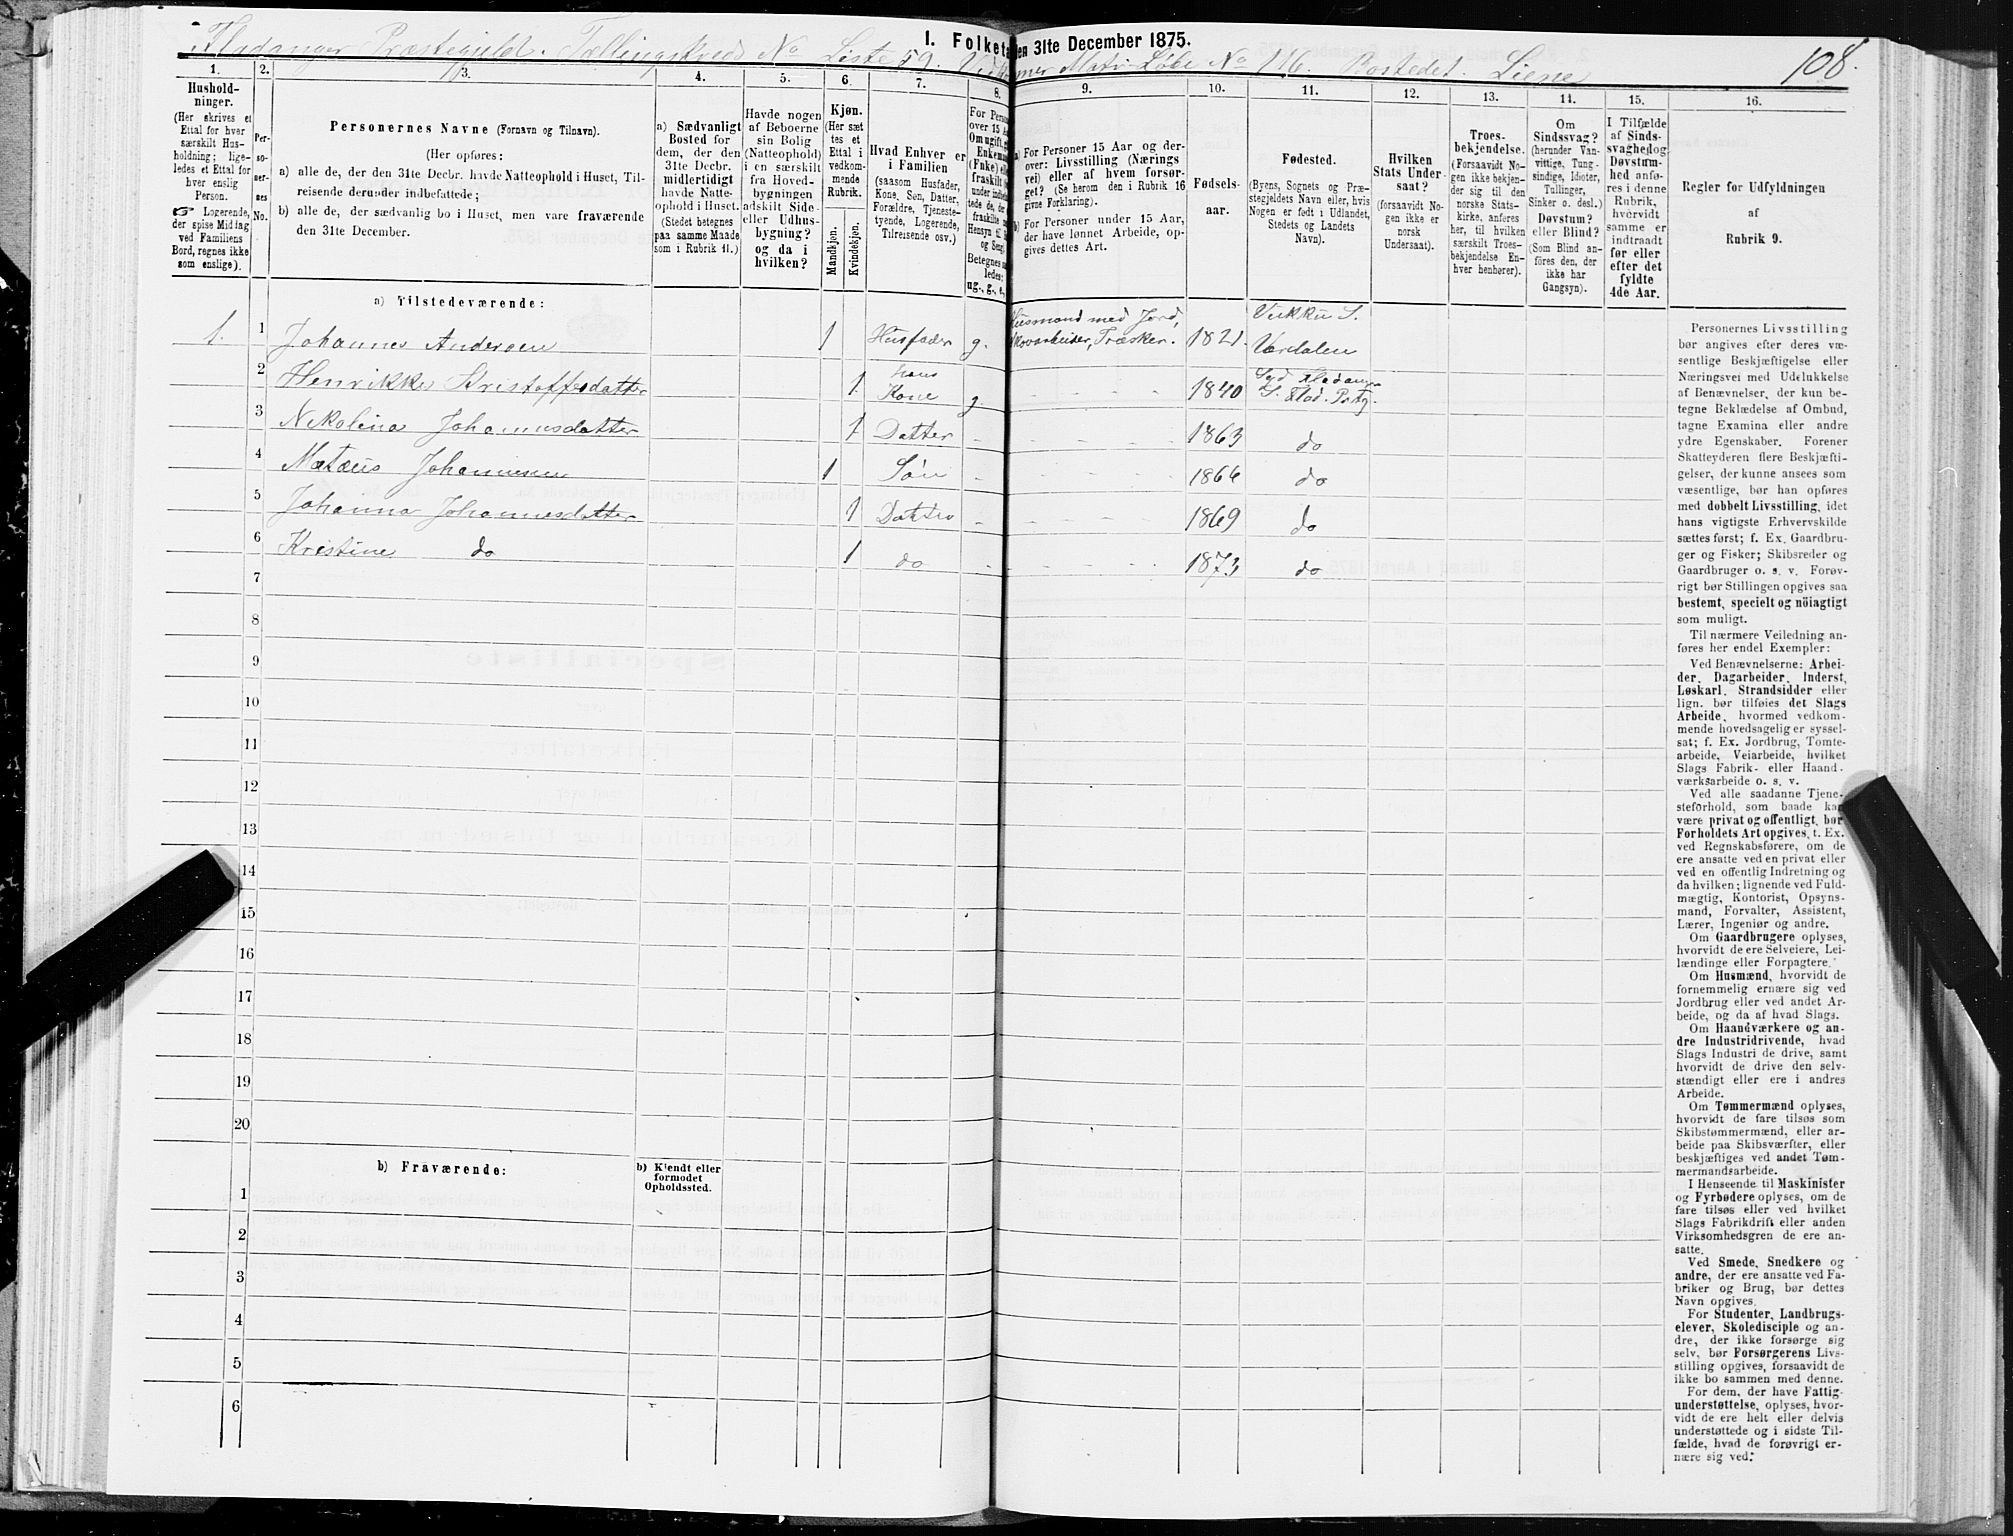 Fladanger Præstegjeld. Tællingskreds No Liste 59. Vedkommer Matr. Løbe No 116. Bostedet Liene
108.
I. Folketa
en 31te December 1875.
1. 2. 3. 4. 5. 6. 7. 8. 9. 10. 11. 12. 13. 14. 15. 16.
Hushold-
ninger.
(Her skrives et
Ettal for hver
særskilt Hus-
holdning; lige-
ledes et Ettal for
hver enslig
Person.
☞ Logerende,
der spise Middag
ved Familiens
Bord, regnes ikke
som enslige).
Per-
so-
ner-
nes
No.
Personernes Navne (Fornavn og Tilnavn).
(Her opføres:
a) alle de, der den 31te Decbr. havde Natteophold i Huset, Til-
reisende derunder indbefattede;
b) alle de, der sædvanlig bo i Huset, men vare fraværende
den 31te December.
a) Sædvanligt
Bosted for
dem, der den
31te Decbr.
midlertidigt
havde Natte-
ophold i Huset.
(Stedet betegnes
paa samme Maade
som i Rubrik 11.)
Havde nogen
af Beboerne
sin Bolig
(Natteophold)
i en særskilt
fra Hoved-
bygningen
adskilt Side-
eller Udhus-
bygning?
og da i
hvilken?
Kjøn.
(Her sæt
tes et
Ettal i
vedkom-
mende
Rubrik.
Mandkjøn.
Kvindekjøn.
Hvad Enhver er
i Familien
(saasom Husfader,
Kone, Søn, Datter,
Forældre, Tjeneste-
tyende, Logerende,
Tilreisende osv.)
For Perso
over 15 Aa
Om ugift, g
Enkema
(Fnke) ell
fraskilt (
under indbe
tede de, der
fraskilte
Hensyn til
og Seng
Betegnes sa
ledes:
ug., g., e.,
a) For Personer 15 Aar og der-
over: Livsstilling (Nærings
vei) eller af hvem forsør-
get? (Se herom den i Rubrik 16
givne Forklaring).
b) For Personer under 15 Aar,
der have lønnet Arbeide, op-
gives dettes Art.
Fødsels-
aar.
Fødested.
(Byens, Sognets og Præ-
stegjeldets Navn eller, hvis
Nogen er født i Udlandet,
Stedets og Landets
Navn).
Hvilken
Stats Under-
saat?
(forsaavidt No-
gen ikke er
norsk
Undersaat).
Troes-
bekjendelse.
(Forsaavidt No-
gen ikke bekjen-
der sig til den
norske Stats-
kirke, anføres
her, til hvilken
særskilt Troes-
bekjendelse En-
hver henhører).
Om
Sindssvag?
(herunder Van-
vittige, Tung-
sindige, Idioter,
Tullinger,
Sinker o. desl.)
Døvstum?
eller Blind?
(Som Blind an-
føres den, der
ikke har
Gangsyn).
I Tilfælde
af Sinds-
svaghed og
Døvstum-
hed anfø-
res i denne
Rubrik,
hvorvidt
samme er
indtraadt
før eller
efter det
fyldte
4de Aar.
Regler for Udfyldningen
af
Rubrik 9.
a) Tilstedeværende:
1. 1 Johannes Andersen 1 Husfader g. Husmand med Jord, Skovarbeider, Træsker. 1821. Vukku S. Værdalen
2 Henrikke Kristoffersdatter 1. hans Kone g. - - - - 1840 Syd Fladanger S. Flad. Præstg.
3 Nikolina Johannesdatter 1 Datter - - - - 1863 do
4 Matæus Johannesen 1 Søn - - - - 1866 do
5 Johanna Johannesdatter 1 Datter - - - - 1869 do
6 Kristine do 1 do - - - - 1873 do
7
8
9
10
11
12
13
14
15
16
17
18
19
20
b) Fraværende:
b) Kjendt eller
formodet
Opholdssted.
1
2
3
4
5
6
Personernes Livsstilling
bør angives efter deres væ-
sentlige Beskjæftigelse eller
Næringsvei med Udelukkelse
af Benævnelser, der kun be-
tegne Beklædelse af Ombud,
tagne Examina eller andre
ydre Egenskaber. Forener
Skatteyderen flere Beskjæfti-
gelser, der kunne ansees som
væsentlige, bør han opføres
med dobbelt Livsstilling, idet
hans vigtigste Erhvervskilde
sættes først; f. Ex. Gaardbru-
ger og Fisker; Skibsreder og
Gaardbruger o. s. v. Forøv-
rigt bør Stillingen opgives saa
bestemt, specielt og nöiagtigt
som muligt.
Til nærmere Veiledning an-
føres her endel Exempler:
Ved Benævnelserne: Arbei-
der, Dagarbeider, Inderst,
Løskarl, Strandsidder eller
lign. bør tilføies det Slags
Arbeide, hvormed vedkom-
mende hovedsagelig er syssel-
sat; f. Ex. Jordbrug, Tomte-
arbeide, Veiarbeide, hvilket
Slags Fabrik- eller Haand-
værksarbeide o. s. v.
Ved alle saadanne Tjene-
steforhold, som baade kan
være privat og offentligt, bør
Forholdets Art opgives, t. Ex.
ved Regnskabsførere, om de
ere ansatte ved en privat eller
ved en offentlig Indretning og
da hvilken; lignende ved Fuld-
mægtig, Kontorist, Opsyns-
mand, Forvalter, Assistent,
Lærer, Ingeniør og andre.
Om Gaardbrugere oplyses,
hvorvidt de ere Selveiere, Lei-
lændinge eller Forpagtere.
Om Husmænd, hvorvidt de
fornemmelig ernære sig ved
Jordbrug eller ved andet Ar-
beide, og da af hvad Slags.
Om Haandværkere og an-
dre Industridrivende, hvad
Slags Industri de drive, samt
hvorvidt de drive den selv-
stændigt eller ere i andres
Arbeide.
Om Tømmermænd oplyses,
hvorvidt de fare tilsøs som
Skibstømmermænd, eller ar-
beide paa Skibsværfter, eller
beskjæftiges ved andet Tøm-
mermandsarbeide.
I Henseende til Maskinister
og Fyrbødere oplyses, om de
fare tilsøs eller ved hvilket
Slags Fabrikdrift eller anden
Virksomhedsgren de ere an-
satte.
Ved Smede, Snedkere og
andre, der ere ansatte ved Fa-
briker og Brug, bør dettes
Navn opgives.
For Studenter, Landbrugs-
elever, Skoledisciple og an-
dre, der ikke forsørge sig
selv, bør Forsørgerens Livs-
stilling opgives, forsaavidt de
ikke bo sammen med denne.
For dem, der have Fattig-
understøttelse, oplyses, hvor-
vidt de ere helt eller delvis
understøttede og i sidste Til-
fælde, hvad de forøvrigt er-
nære sig ved.